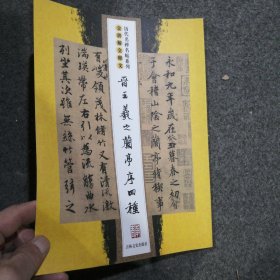 永和九年歲在癸丑暮春之初會
于會稽山陰之蘭亭脩稧事
历代名碑名帖系列
晉王羲之蘭亭序四種
吉林文史出版社
有峻領茂林脩竹又有清流激
湍暎帶左右引以為流觴曲水
列坐其次雖無絲竹管弦之